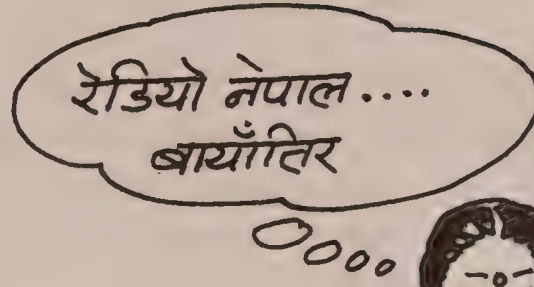 रेडियो नेपाल....
बायाँतिर